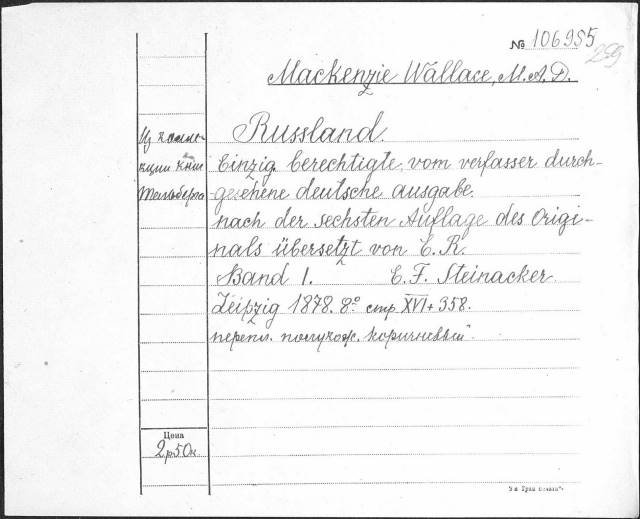 № 106955
299
Mackenzie Wallace, M.A.D.
Russland.
Einzig berechtigte, vom verfasser durch-
gesehene deutsche ausgabe.
nach der sechsten Auflage des Origi-
nals übersetzt von E. R.
Band I. E. F. Steinacker.
Leipzig 1878. 8° стр XVI + 358.
перепл. полукож. коричневый.
Из коллек-
ции кн
Цена
2р50к.